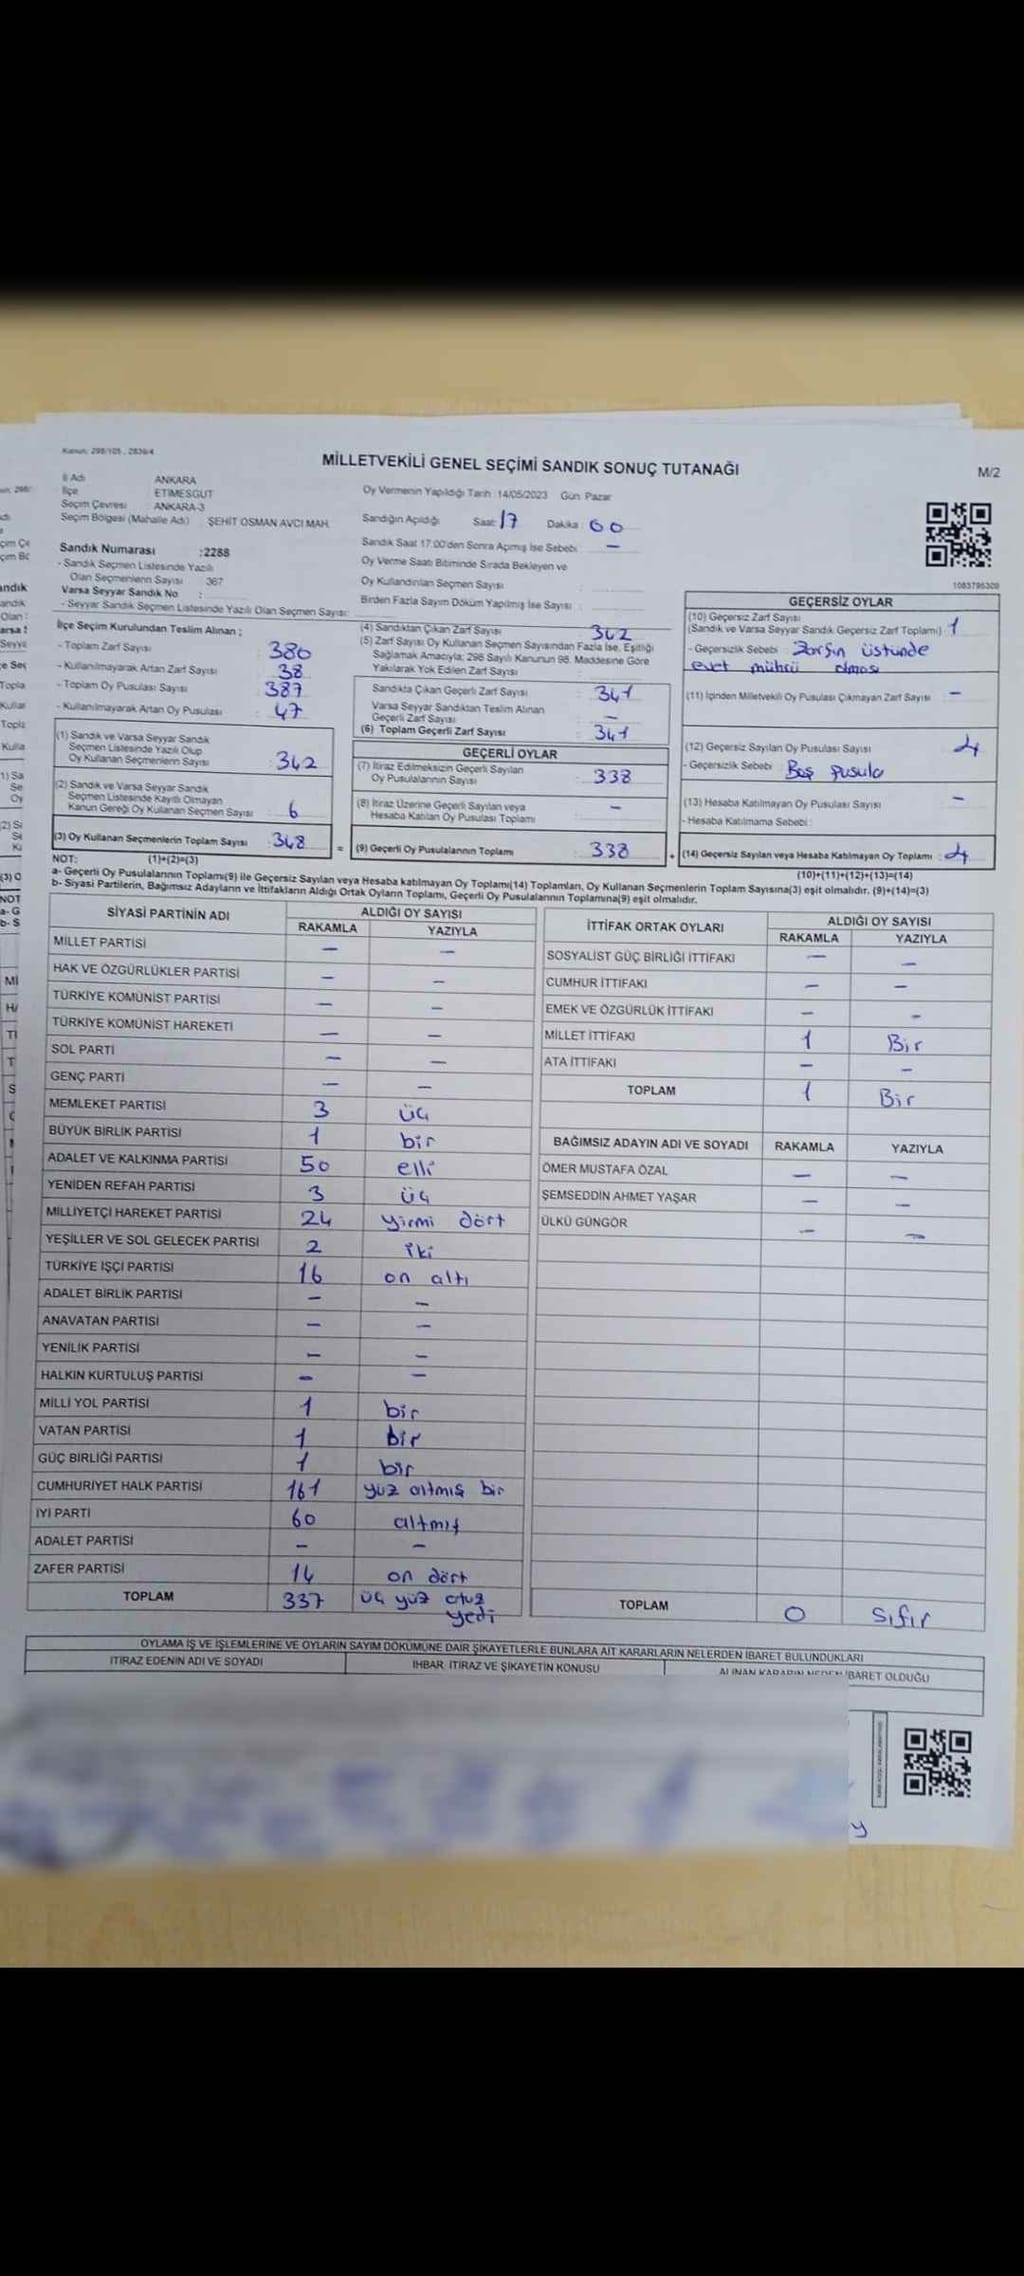 Kanun: 298/105, 2839/4
MİLLETVEKİLİ GENEL SEÇİMİ SANDIK SONUÇ TUTANAĞI
M/2
İl Adı ANKARA
İlçe ETİMESGUT
Seçim Çevresi ANKARA-3
Seçim Bölgesi (Mahalle Adı) ŞEHİT OSMAN AVCI MAH.
Sandık Numarası :2288
- Sandık Seçmen Listesinde Yazılı
Olan Seçmenlerin Sayısı 367
Varsa Seyyar Sandık No :
- Seyyar Sandık Seçmen Listesinde Yazılı Olan Seçmen Sayısı:
Oy Vermenin Yapıldığı Tarih :14/05/2023 Gün: Pazar
Sandığın Açıldığı Saat: 17 Dakika: 00
Sandık Saat 17:00'den Sonra Açmış İse Sebebi : —
Oy Verme Saati Bitiminde Sırada Bekleyen ve
Oy Kullandırılan Seçmen Sayısı
Birden Fazla Sayım Döküm Yapılmış İse Sayısı :
1083795309
İlçe Seçim Kurulundan Teslim Alınan ;
- Toplam Zarf Sayısı : 380
- Kullanılmayarak Artan Zarf Sayısı : 38
- Toplam Oy Pusulası Sayısı : 387
- Kullanılmayarak Artan Oy Pusulası : 47
(1) Sandık ve Varsa Seyyar Sandık
Seçmen Listesinde Yazılı Olup
Oy Kullanan Seçmenlerin Sayısı : 342
(2) Sandık ve Varsa Seyyar Sandık
Seçmen Listesinde Kayıtlı Olmayan
Kanun Gereği Oy Kullanan Seçmen Sayısı : 6
(3) Oy Kullanan Seçmenlerin Toplam Sayısı : 348
(4) Sandıktan Çıkan Zarf Sayısı : 342
(5) Zarf Sayısı Oy Kullanan Seçmen Sayısından Fazla İse, Eşitliği
Sağlamak Amacıyla; 298 Sayılı Kanunun 98. Maddesine Göre
Yakılarak Yok Edilen Zarf Sayısı :
Sandıkta Çıkan Geçerli Zarf Sayısı : 341
Varsa Seyyar Sandıktan Teslim Alınan
Geçerli Zarf Sayısı : —
(6) Toplam Geçerli Zarf Sayısı : 341
GEÇERLİ OYLAR
(7) İtiraz Edilmeksizin Geçerli Sayılan
Oy Pusulalarının Sayısı : 338
(8) İtiraz Üzerine Geçerli Sayılan veya
Hesaba Katılan Oy Pusulası Toplamı : —
= (9) Geçerli Oy Pusulalarının Toplamı : 338
GEÇERSİZ OYLAR
(10) Geçersiz Zarf Sayısı
(Sandık ve Varsa Seyyar Sandık Geçersiz Zarf Toplamı) : 1
- Geçersizlik Sebebi : Zarfın üstünde
evet mührü olması
(11) İçinden Milletvekili Oy Pusulası Çıkmayan Zarf Sayısı : —
(12) Geçersiz Sayılan Oy Pusulası Sayısı : 4
- Geçersizlik Sebebi : Boş pusula
(13) Hesaba Katılmayan Oy Pusulası Sayısı : —
- Hesaba Katılmama Sebebi :
+ (14) Geçersiz Sayılan veya Hesaba Katılmayan Oy Toplamı : 4
NOT: (1)+(2)=(3)
(10)+(11)+(12)+(13)=(14)
a- Geçerli Oy Pusulalarının Toplamı(9) ile Geçersiz Sayılan veya Hesaba katılmayan Oy Toplamı(14) Toplamları, Oy Kullanan Seçmenlerin Toplam Sayısına(3) eşit olmalıdır. (9)+(14)=(3)
b- Siyasi Partilerin, Bağımsız Adayların ve İttifakların Aldığı Ortak Oyların Toplamı, Geçerli Oy Pusulalarının Toplamına(9) eşit olmalıdır.
SİYASİ PARTİNİN ADI ALDIĞI OY SAYISI
RAKAMLA YAZIYLA
MİLLET PARTİSİ — —
HAK VE ÖZGÜRLÜKLER PARTİSİ — —
TÜRKİYE KOMÜNİST PARTİSİ — —
TÜRKİYE KOMÜNİST HAREKETİ — —
SOL PARTİ — —
GENÇ PARTİ — —
MEMLEKET PARTİSİ 3 üç
BÜYÜK BİRLİK PARTİSİ 1 bir
ADALET VE KALKINMA PARTİSİ 50 elli
YENİDEN REFAH PARTİSİ 3 üç
MİLLİYETÇİ HAREKET PARTİSİ 24 yirmi dört
YEŞİLLER VE SOL GELECEK PARTİSİ 2 iki
TÜRKİYE İŞÇİ PARTİSİ 16 on altı
ADALET BİRLİK PARTİSİ — —
ANAVATAN PARTİSİ — —
YENİLİK PARTİSİ — —
HALKIN KURTULUŞ PARTİSİ — —
MİLLİ YOL PARTİSİ 1 bir
VATAN PARTİSİ 1 bir
GÜÇ BİRLİĞİ PARTİSİ 1 bir
CUMHURİYET HALK PARTİSİ 161 yüz altmış bir
İYİ PARTİ 60 altmış
ADALET PARTİSİ — —
ZAFER PARTİSİ 14 on dört
TOPLAM 337 üç yüz otuz
yedi
İTTİFAK ORTAK OYLARI ALDIĞI OY SAYISI
RAKAMLA YAZIYLA
SOSYALİST GÜÇ BİRLİĞİ İTTİFAKI — —
CUMHUR İTTİFAKI — —
EMEK VE ÖZGÜRLÜK İTTİFAKI — —
MİLLET İTTİFAKI 1 Bir
ATA İTTİFAKI — —
TOPLAM 1 Bir
BAĞIMSIZ ADAYIN ADI VE SOYADI RAKAMLA YAZIYLA
ÖMER MUSTAFA ÖZAL — —
ŞEMSEDDİN AHMET YAŞAR — —
ÜLKÜ GÜNGÖR — —
TOPLAM 0 Sıfır
OYLAMA İŞ VE İŞLEMLERİNE VE OYLARIN SAYIM DÖKÜMÜNE DAİR ŞİKAYETLERLE BUNLARA AİT KARARLARIN NELERDEN İBARET BULUNDUKLARI
İTİRAZ EDENİN ADI VE SOYADI İHBAR, İTİRAZ VE ŞİKAYETİN KONUSU ALINAN KARARIN NEDEN İBARET OLDUĞU